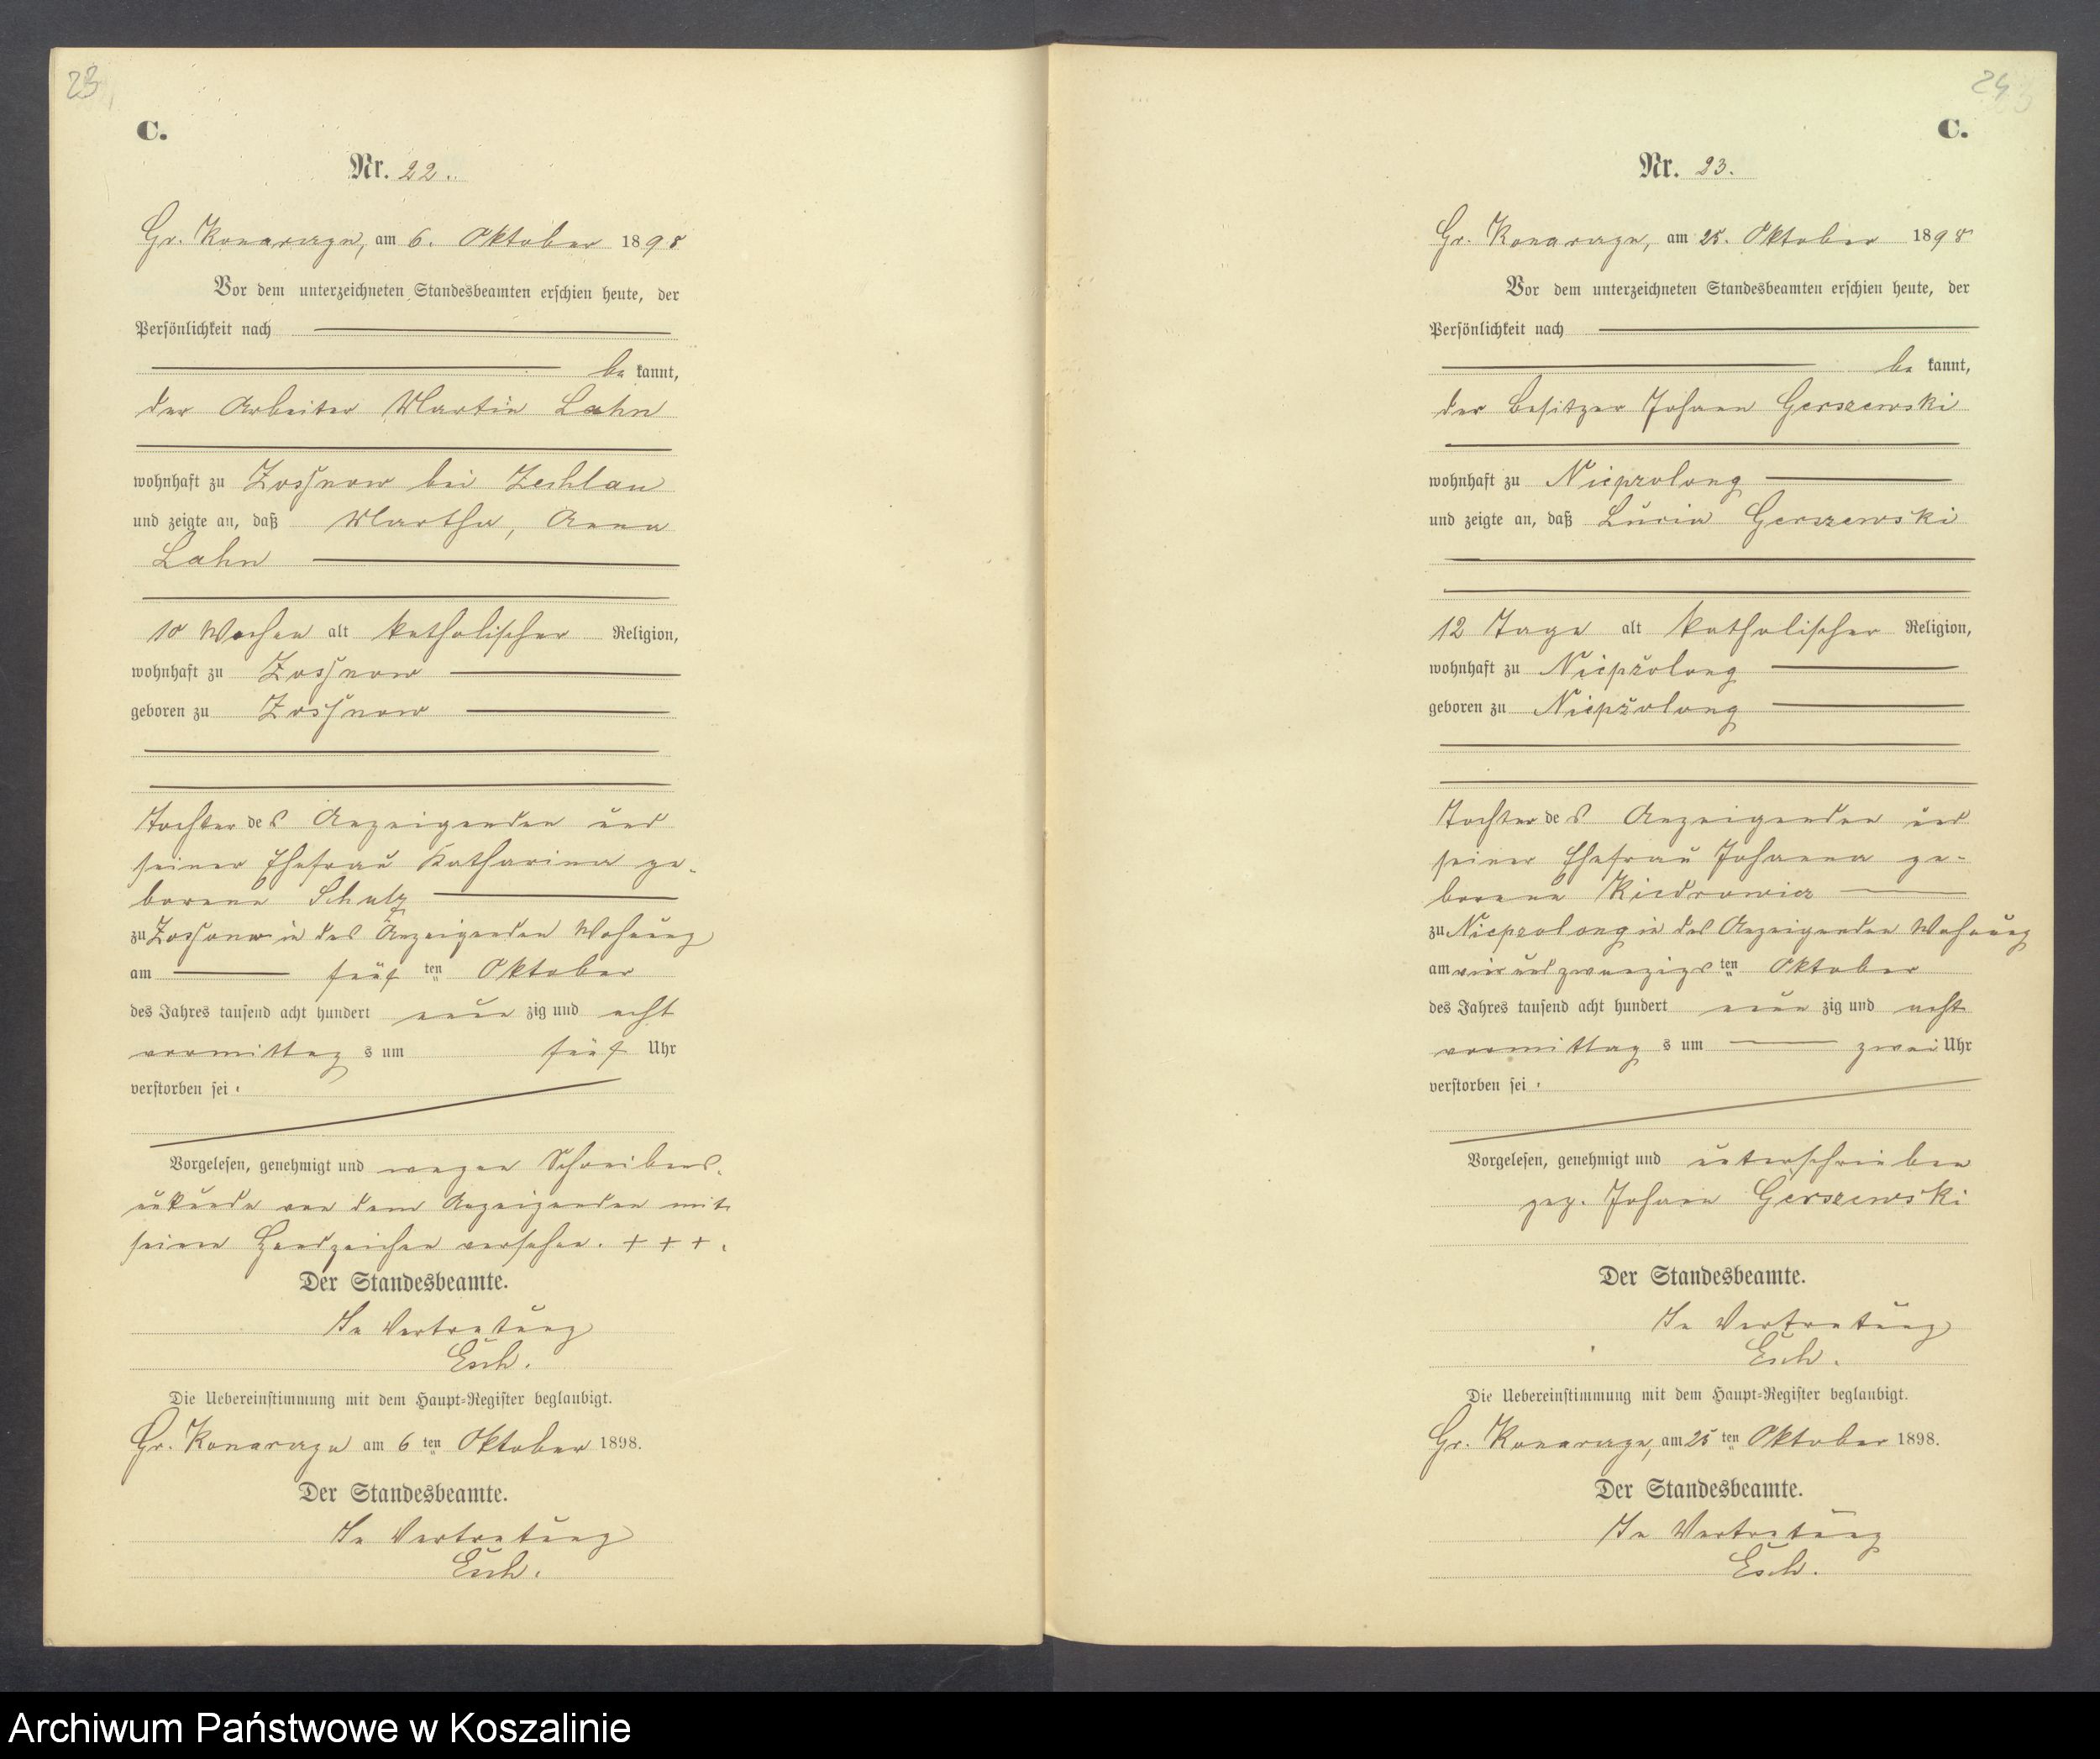 23
C.
Nr. 22.
Gr. Konarczyn, am 6. Oktober 1898
Vor dem unterzeichneten Standesbeamten erschien heute, der
Persönlichkeit nach
be kannt,
der Arbeiter Martin Lahn
wohnhaft zu Zossnow bei Zechlau
und zeigte an, daß Martha, Anna
Lahn
10 Wochen alt katholischer Religion,
wohnhaft zu Zossnow
geboren zu Zossnow
Tochter des Anzeigenden und
seiner Ehefrau Katharina ge-
borene Schulz
zu Zossnow in des Anzeigenden Wohnung
am fünf ten Oktober
des Jahres tausend acht hundert neun zig und acht
vormittag s um fünf Uhr
verstorben sei.
Vorgelesen, genehmigt und wegen Schreibens-
unkunde von dem Anzeigenden mit
seinen Handzeichen versehen. + + +.
Der Standesbeamte.
In Vertretung
Esch.
Die Uebereinstimmung mit dem Haupt-Register beglaubigt.
Gr. Konarczyn am 6 ten Oktober 1898.
Der Standesbeamte.
In Vertretung
Esch.
24
C.
Nr. 23.
Gr. Konarczyn, am 25. Oktober 1898
Vor dem unterzeichneten Standesbeamten erschien heute, der
Persönlichkeit nach
be kannt,
der Besitzer Johann Gerszewski
wohnhaft zu Nieprzolong
und zeigte an, daß Lucia Gerszewski
12 Tage alt katholischer Religion,
wohnhaft zu Niepžolong
geboren zu Niepžolong
Tochter des Anzeigenden und
seiner Ehefrau Johanna ge-
borene Kiedrowicz
zu Niepzolong in des Anzeigenden Wohnung
am vier und zwanzigs ten Oktober
des Jahres tausend acht hundert neun zig und acht
vormittag s um zwei Uhr
verstorben sei.
Vorgelesen, genehmigt und unterschrieben
gez. Johann Gerszewski
Der Standesbeamte.
In Vertretung
Esch.
Die Uebereinstimmung mit dem Haupt-Register beglaubigt.
Gr. Konarczyn, am 25 ten Oktober 1898.
Der Standesbeamte.
In Vertretung
Esch.
Archiwum Państwowe w Koszalinie